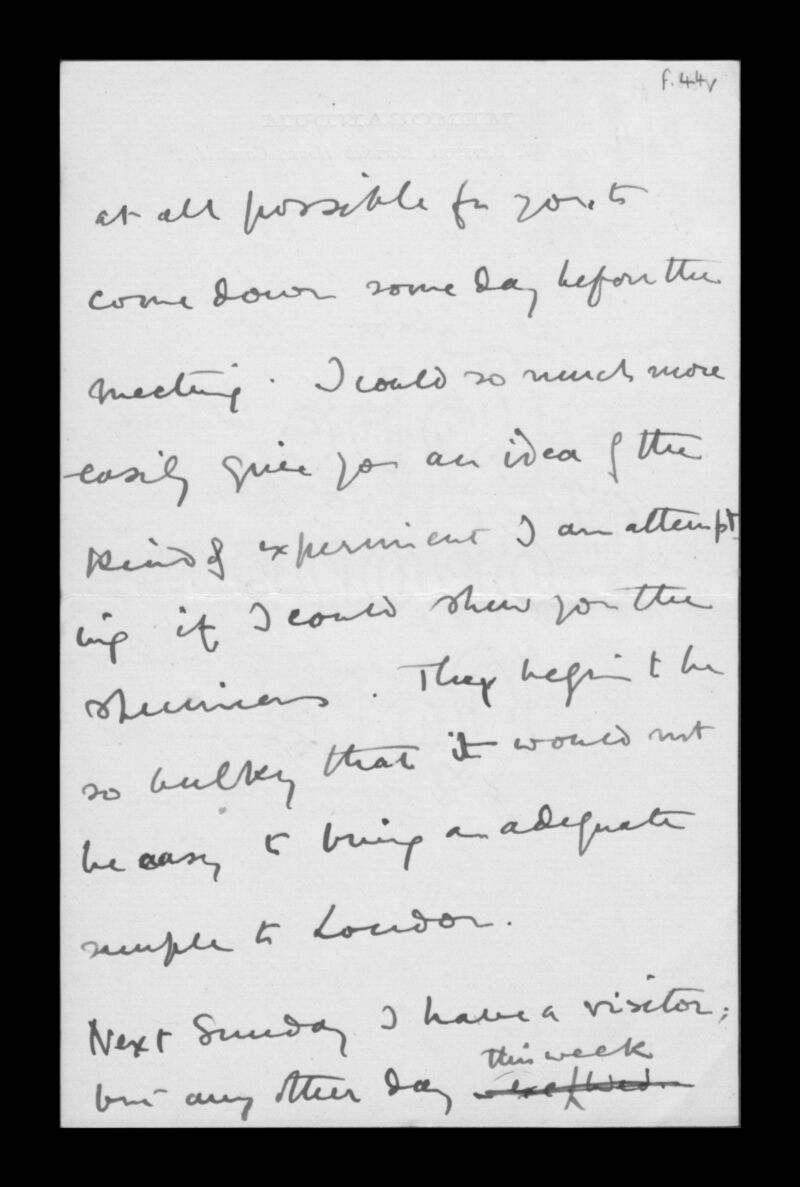 f. 44v
MEMORANDUM
at all possible for you to
come down some day before the
meeting. I could so much more
easily give you an idea of the
kind of experiment I am attempt-
ing if I could shew you the
specimens. They begin to be
so bulky that it would not
be easy to bring an adequate
sample to London.
Next Sunday I have a visitor;
this week
but any other day